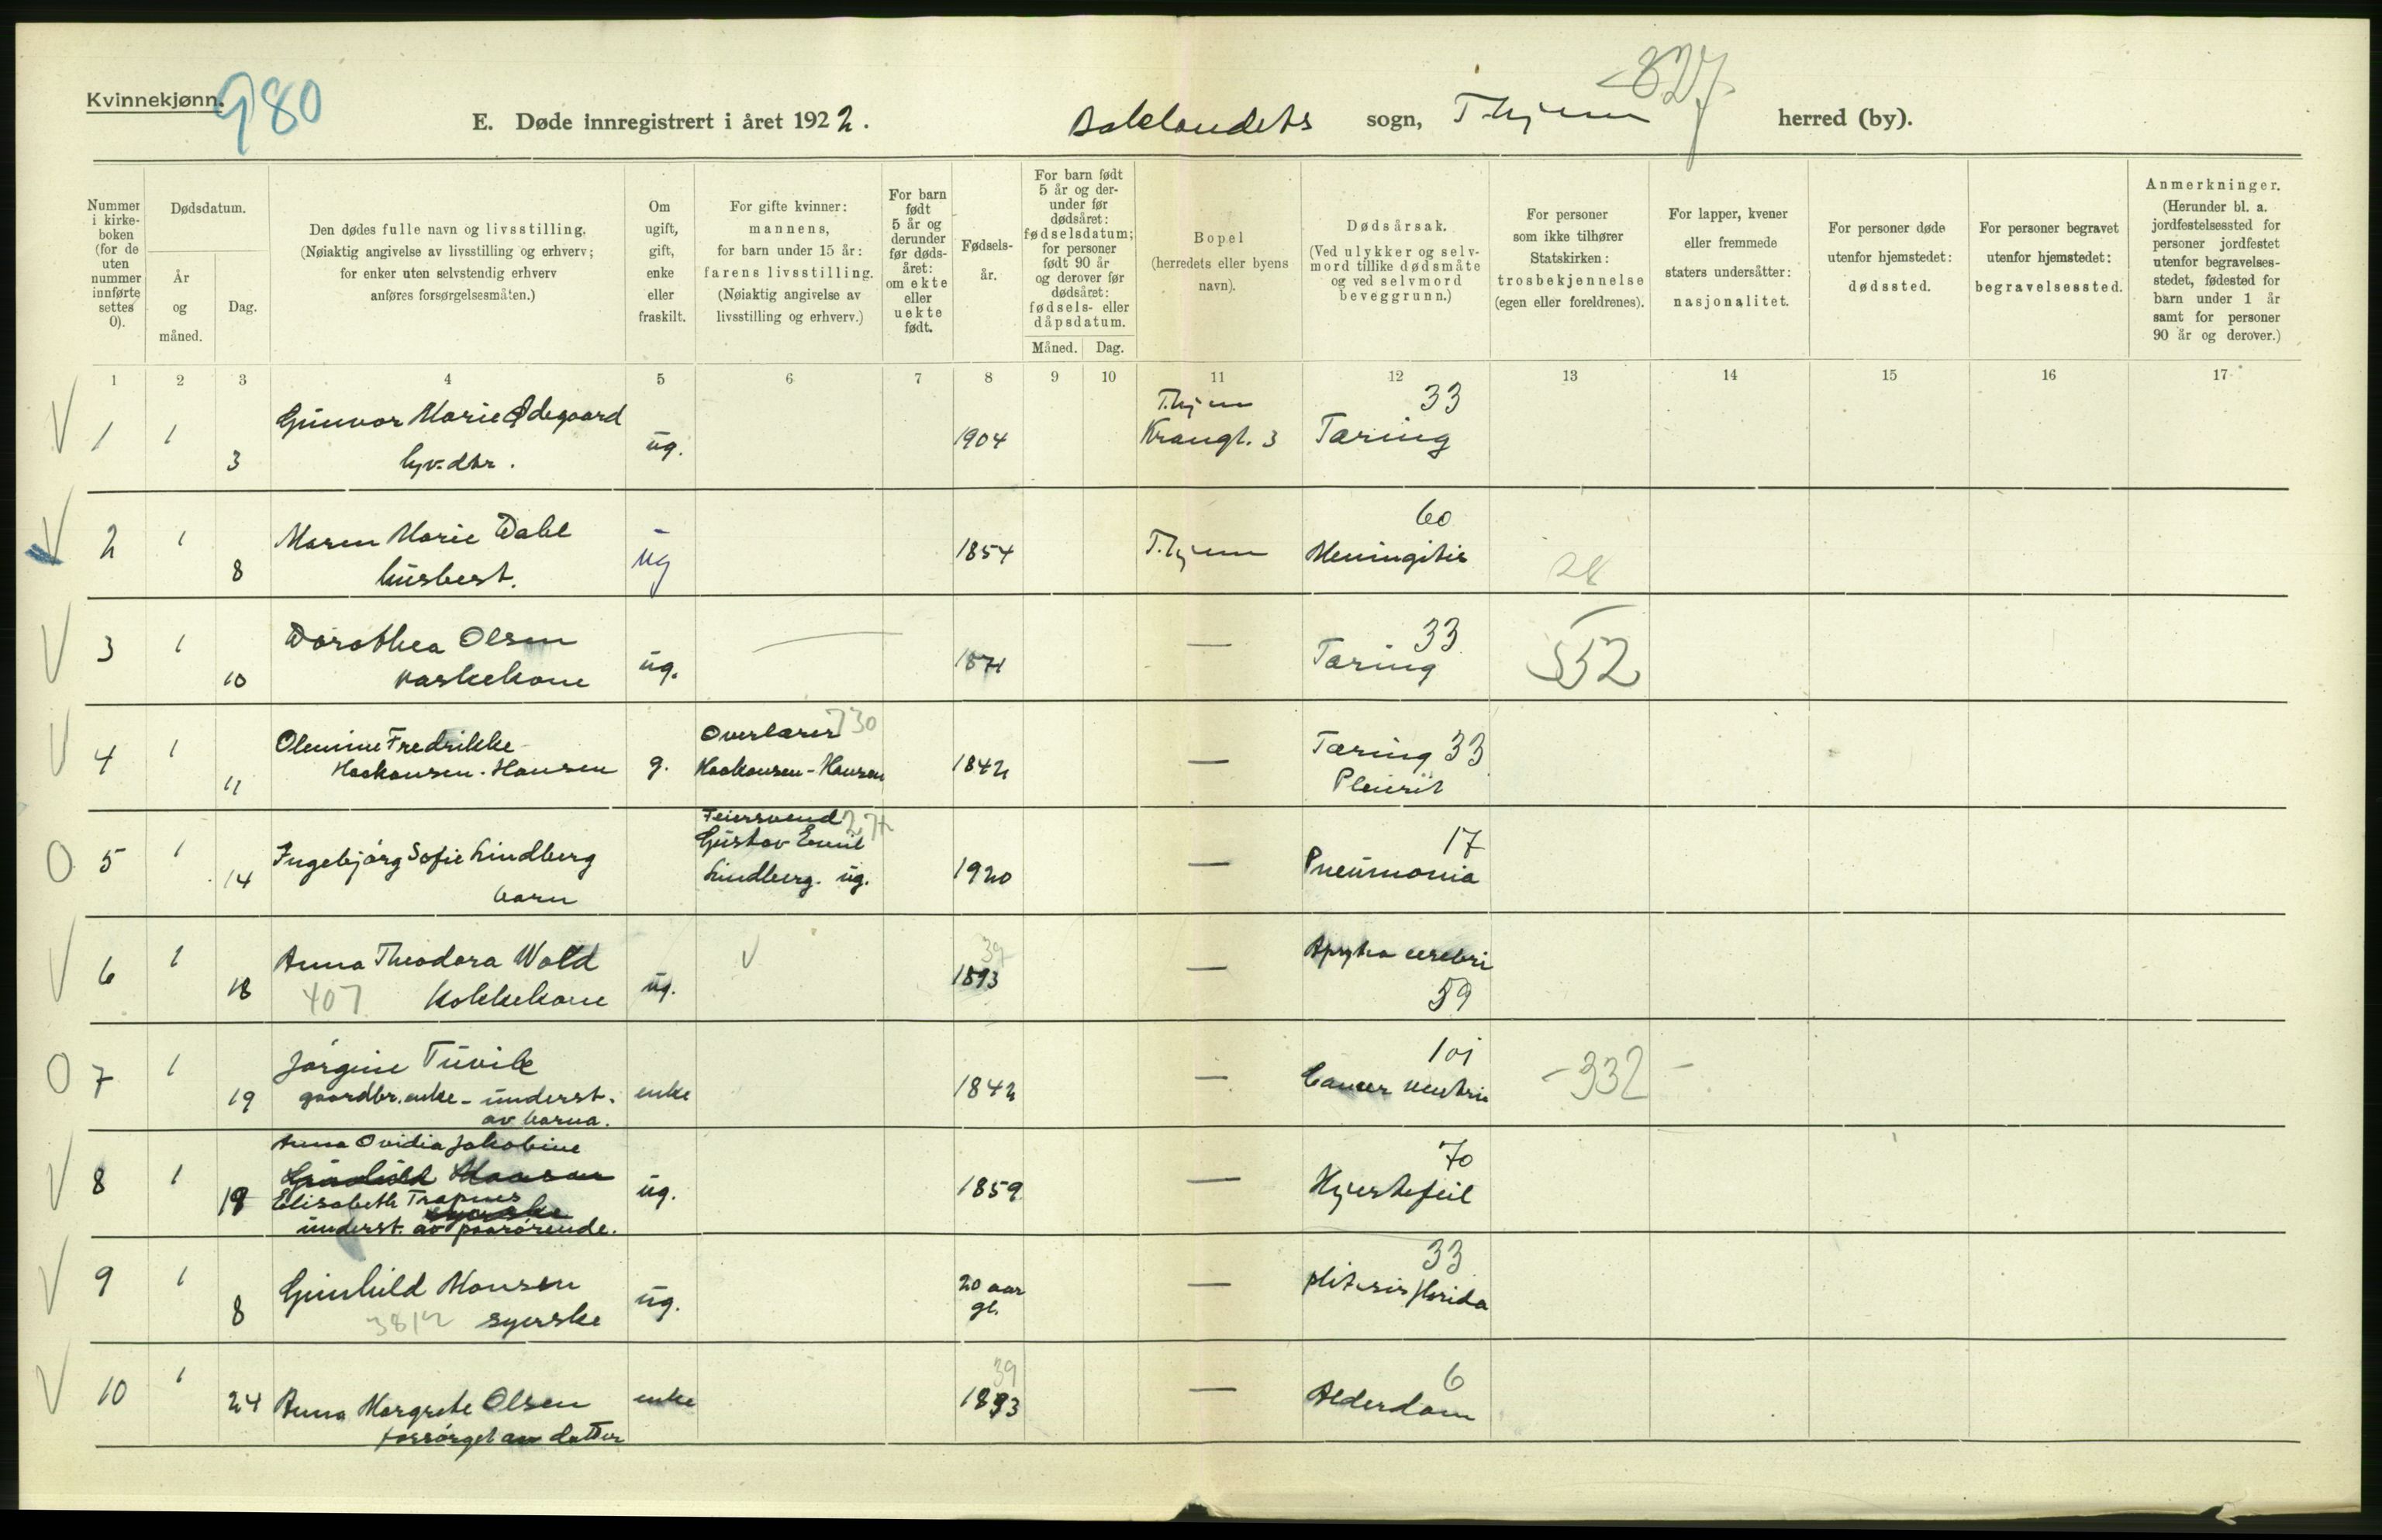 Kvinnekjønn.
980
E. Døde innregistrert i året 1922.
Baklandets sogn, T.hjem herred (by).
827
Nummer i kirke-boken (for de uten nummer innførte settes 0).
Dødsdatum.
År og måned.
Dag.
Den dødes fulle navn og livsstilling.
(Nøiaktig angivelse av livsstilling og erhverv;
for enker uten selvstendig erhverv
anføres forsørgelsesmåten.)
Om ugift, gift, enke eller fraskilt.
For gifte kvinner:
mannens,
for barn under 15 år:
farens livsstilling.
(Nøiaktig angivelse av
livsstilling og erhverv.)
For barn født 5 år og derunder før døds-året: om ekte eller uekte født.
Fødsels-år.
For barn født 5 år og der-under før dødsåret: fødselsdatum; for personer født 90 år og derover før dødsåret: fødsels- eller dåpsdatum.
Måned. Dag.
Bopel
(herredets eller byens navn).
Dødsårsak.
(Ved ulykker og selv-mord tillike dødsmåte og ved selvmord beveggrunn.)
For personer
som ikke tilhører
Statskirken:
trosbekjennelse
(egen eller foreldrenes).
For lapper, kvener
eller fremmede
staters undersåtter:
nasjonalitet.
For personer døde
utenfor hjemstedet:
dødssted.
For personer begravet
utenfor hjemstedet:
begravelsessted.
Anmerkninger.
(Herunder bl. a.
jordfestelsessted for
personer jordfestet
utenfor begravelses-
stedet, fødested for
barn under 1 år
samt for personer
90 år og derover.)
1 2 3 4 5 6 7 8 9 10 11 12 13 14 15 16 17
V 1 1 3 Gunvor Marie Ødegaard
ug. 1904 T.hjem
Krangl. 3
33
Tæring
V 2 1 8 Maren Marie Dahl
husbest.
ug 1854 T.hjem
60
Meningitis
V 3 1 10 Dorothea Olsen
vaskekone
ug. 1871 —
33
Tæring
552
V 4 1 11 Olemine Fredrikke
Haakonsen-Hansen
g. Overlærer 730
Haakonsen-Hansen
1842 —
Tæring 33
Pleurit
O 5 1 14 Ingebjørg Sofie Lindberg
barn
Feiersvend
Gustav Emil
Lindberg. ug.
1920 —
17
Pneumonia
V 6 1 18 Anna Theodora Wold
407 Kokkekone
ug. V 39
1893 —
cerebri
59
O 7 1 19 Jørgine Tuvik
gaardbr. enke - underst.
av barna.
enke 1842 —
101
Cancer ventric
-332 -
V 8 1 19 Anna Ovidia Jakobine
Gunhild Hansen
Elisabeth Trapnes
syerske
underst. av paarørende.
ug. 1859 —
70
Hjertefeil
V 9 1 8 Gunhild Hansen
3812 syerske
ug. 20 aar
gl. —
33
phtisis florida
V 10 1 24 Anna Margrete Olsen
forsørget av datter
enke 39
1833 —
6
Alderdom